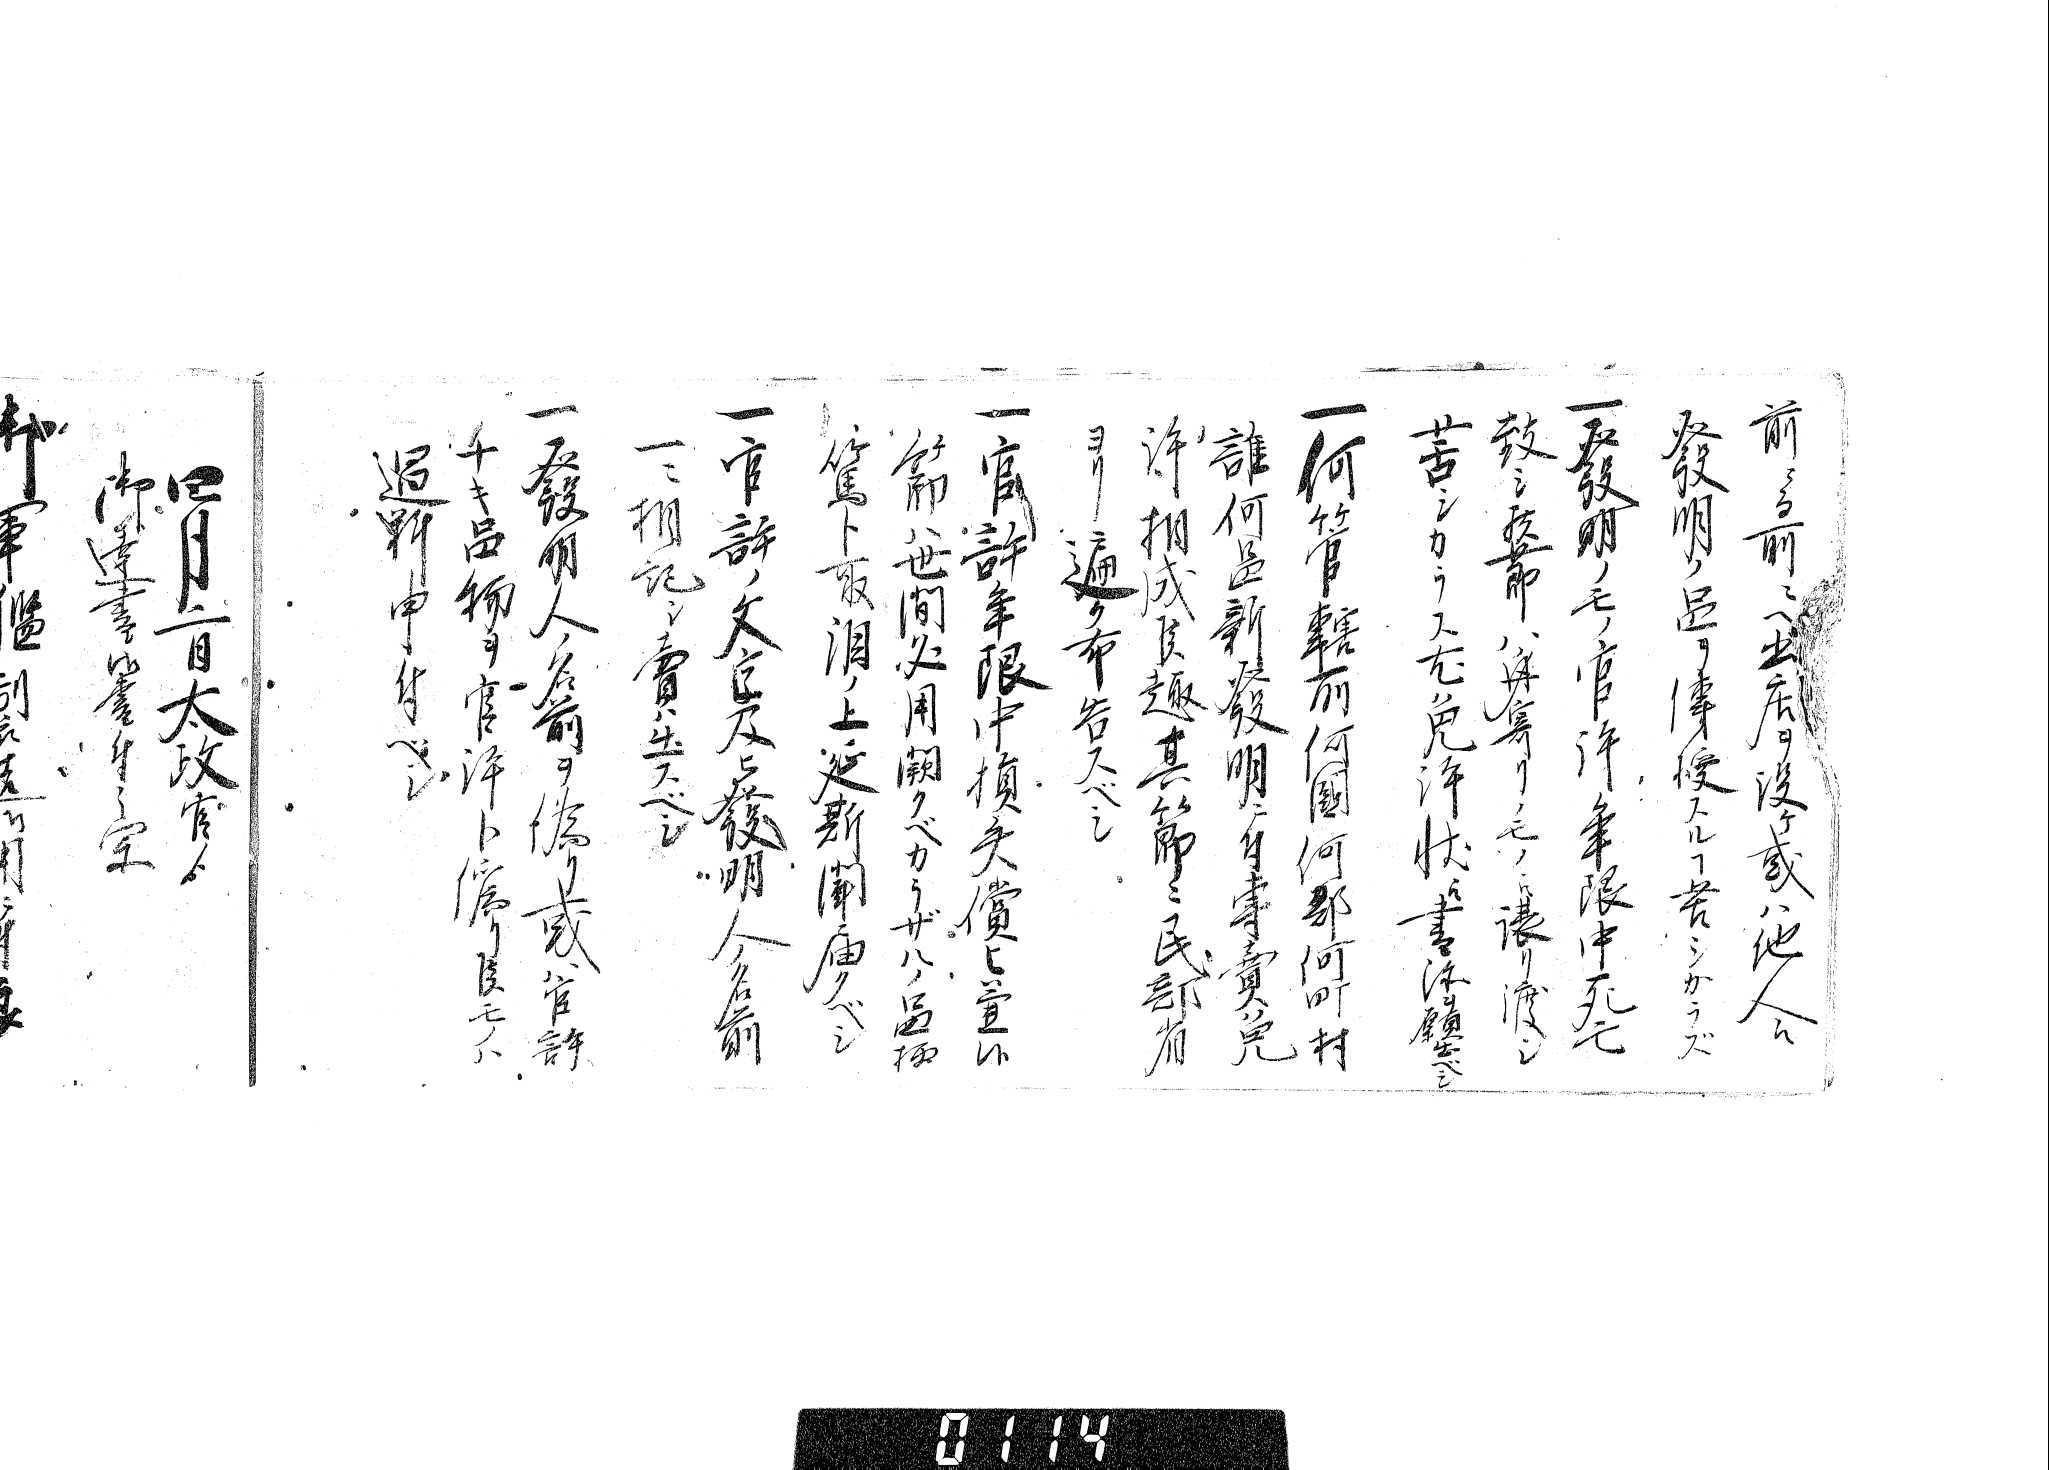 前ニ前ニヘ出店ヲ設ケ或ハ他人ヘ
發明ノ品ヲ傳授スルヿ苦シカラズ
一發明ノモノ官許年限中死亡
致シ候節ハ身寄リノモノヘ譲リ渡シ
苦シカラス尤免許状書改ヲ願出ベシ
一何管轄所何國何郡何町村
誰何品新發明ニ付専賣免
許相成候趣其節ニ民部省
ヨリ遍ク布告スベシ
一官許年限中損失償ヒ兼候
節ハ世間必用闕クベカラザルノ品柄
篤ト取調ノ上延期聞届クベシ
一官許ノ文字及ヒ發明人ノ名前
一ニ相記シ賣出スベシ
一發明人ノ名前ヲ偽リ或ハ官許
ナキ品物ヲ官許ト偽リ候モノハ
過料申付ベシ
四月二日太政官ゟ
御達書御書付之写
0114